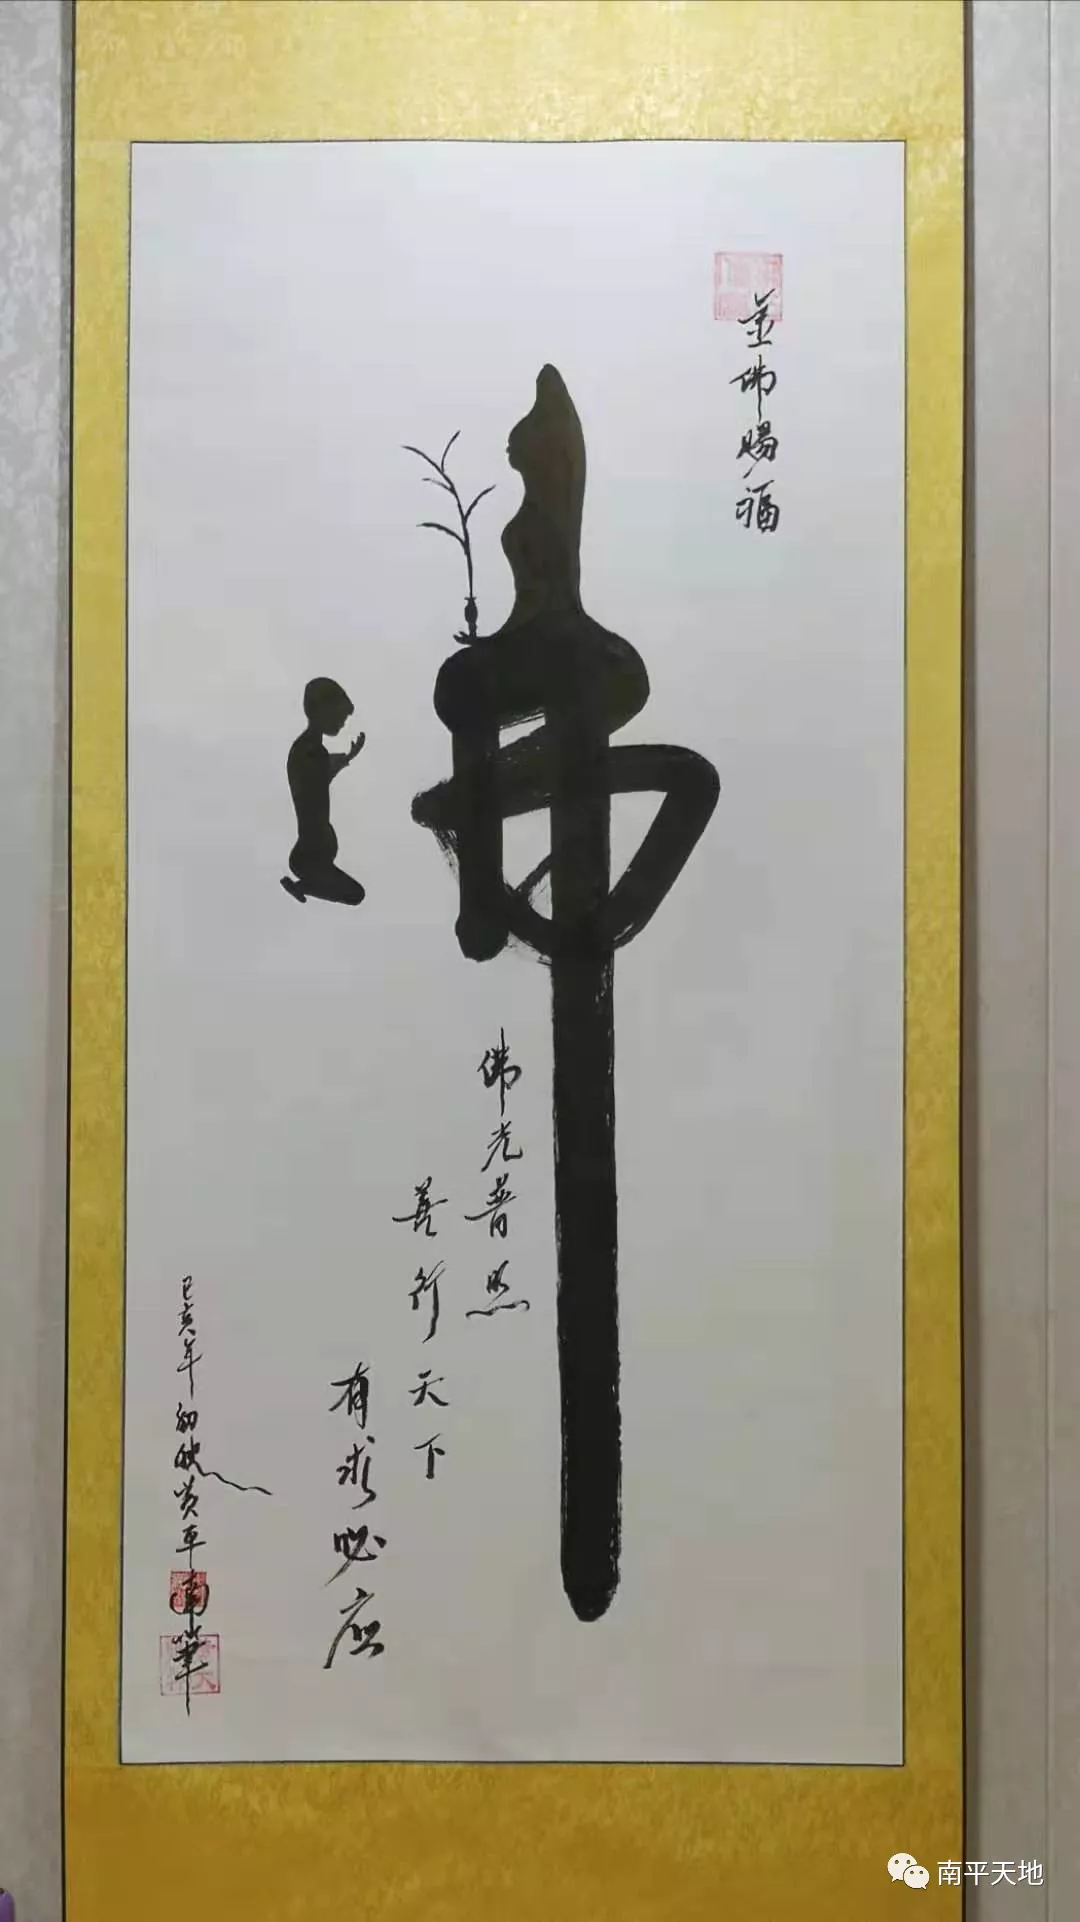 金佛賜福
佛
佛光普照
善行天下
有求必应
己亥年初秋黄平南筆
南平天地